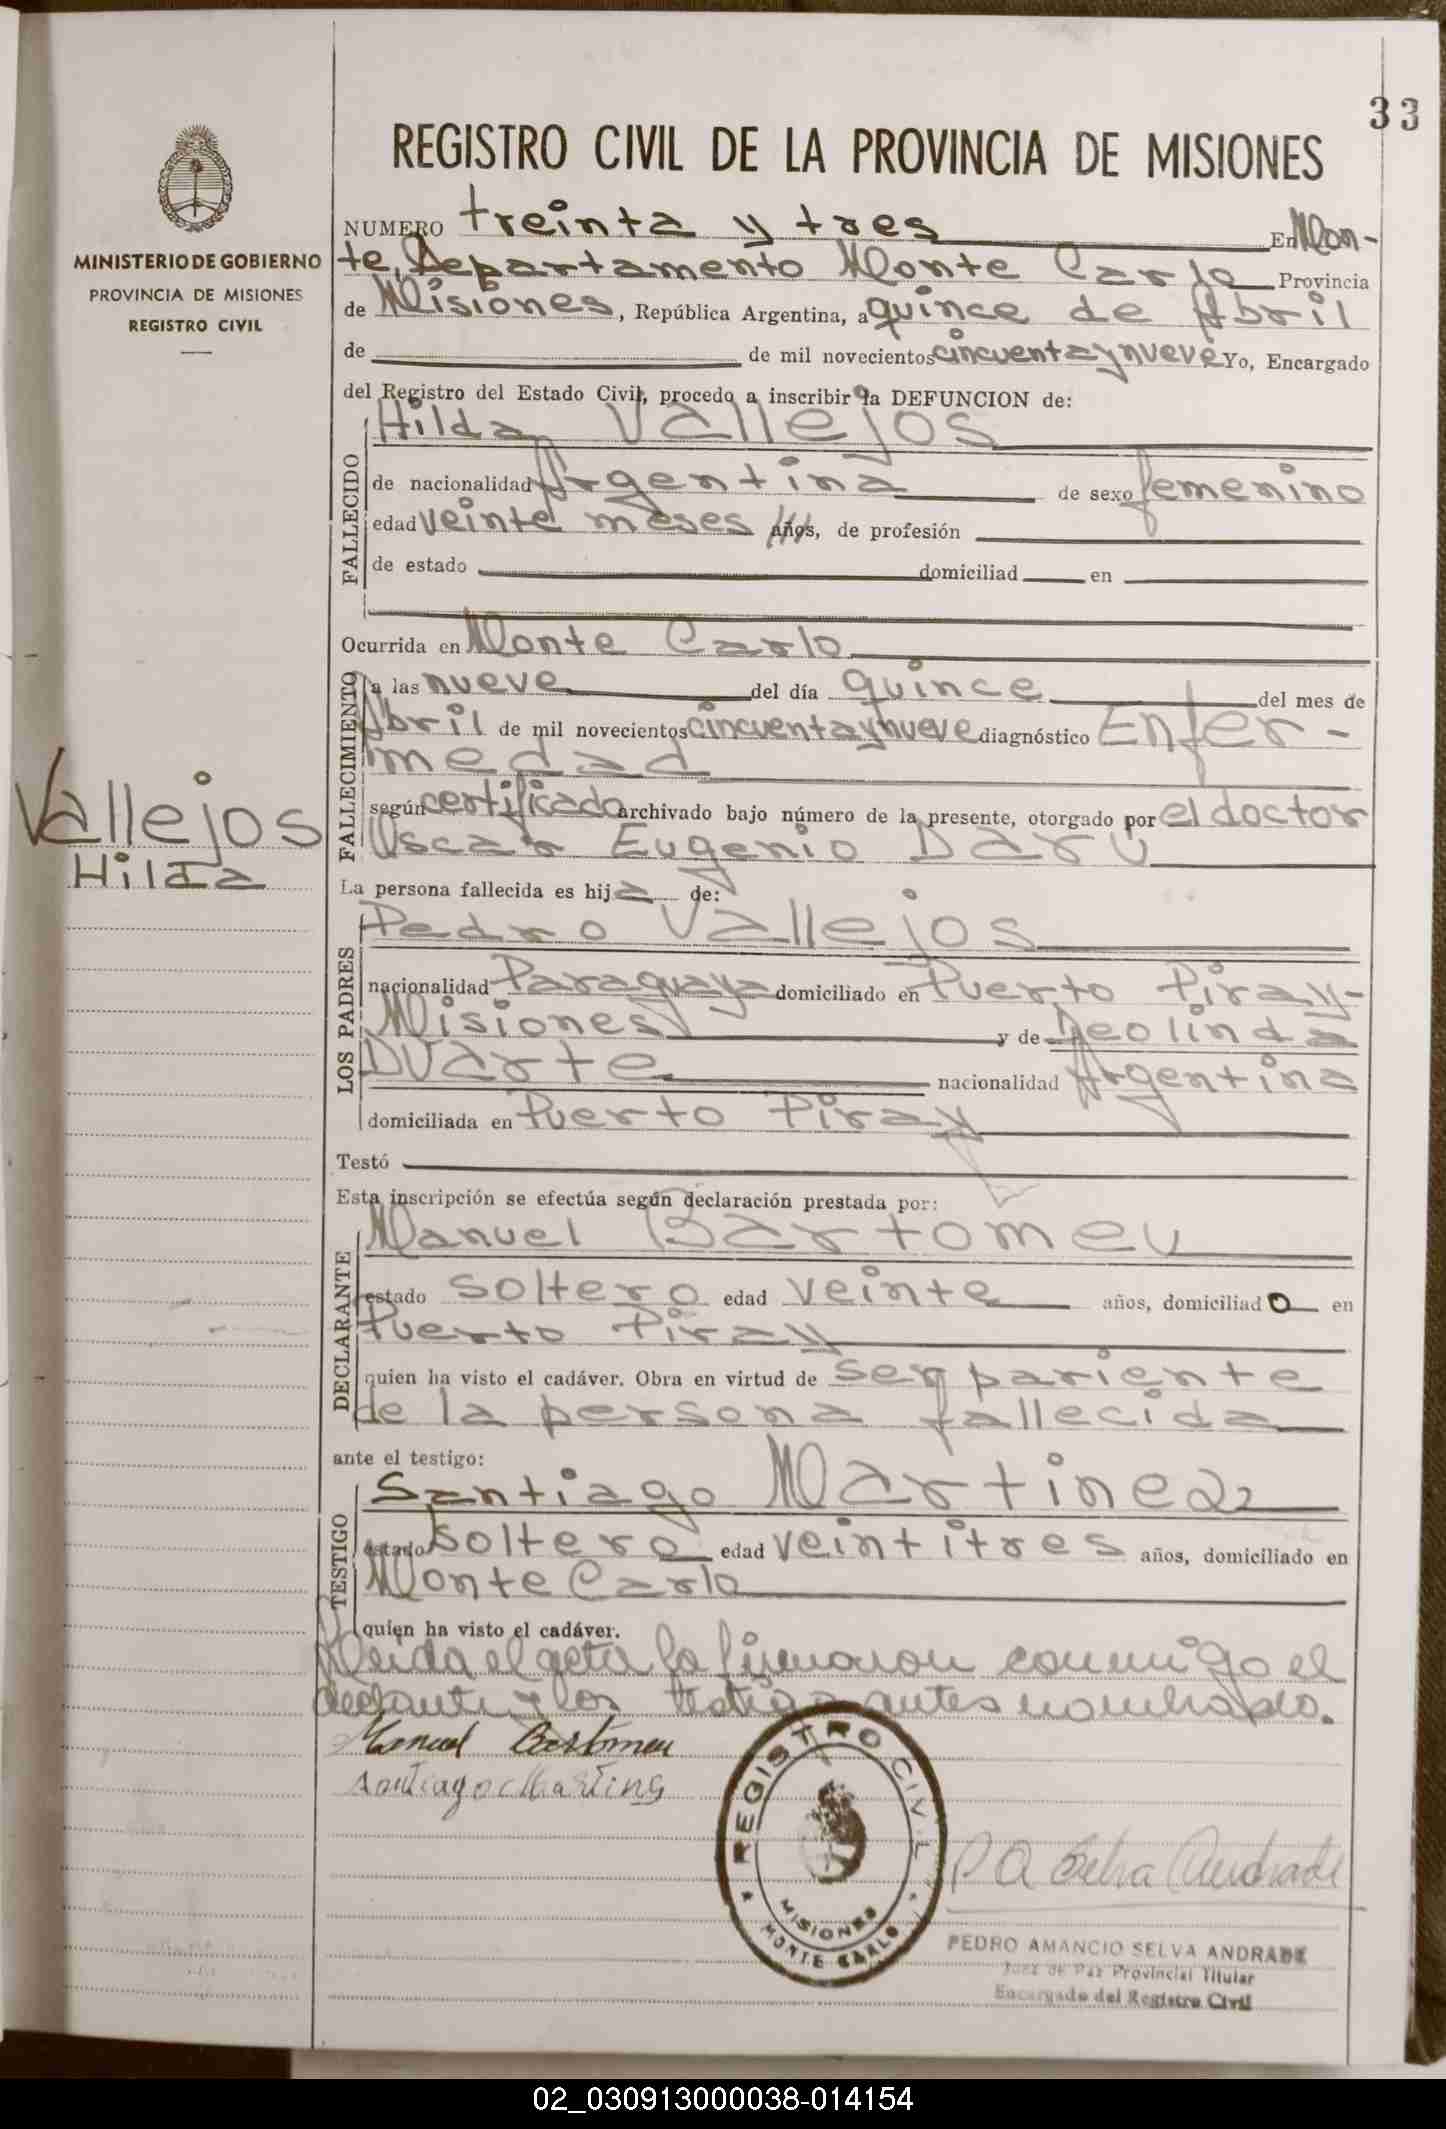 33
REGISTRO CIVIL DE LA PROVINCIA DE MISIONES
MINISTERIO DE GOBIERNO
PROVINCIA DE MISIONES
REGISTRO CIVIL
Vallejos
Hilda
NUMERO treinta y tres En Mon-
te, Departamento Monte Carlo Provincia
de Misiones, República Argentina, a quince de Abril
de de mil novecientos cincuenta y nueve Yo, Encargado
del Registro del Estado Civil, procedo a inscribir la DEFUNCION de:
FALLECIDO
Hilda Vallejos
de nacionalidad Argentina de sexo femenino
edad veinte meses años, de profesión
de estado domiciliad en
Ocurrida en Monte Carlo
FALLECIMIENTO
a las nueve del día quince del mes de
Abril de mil novecientos cincuenta y nueve diagnóstico Enfer-
medad
según certificado archivado bajo número de la presente, otorgado por el doctor
Oscar Eugenio Darú
La persona fallecida es hija de:
LOS PADRES
Pedro Vallejos
nacionalidad Paraguaya domiciliado en Puerto Piray-
Misiones y de Deolinda
Duarte nacionalidad Argentina
domiciliada en Puerto Piray
Testó
Esta inscripción se efectúa según declaración prestada por:
DECLARANTE
Manuel Bartomeu
estado soltero edad veinte años, domiciliado en
Puerto Piray
quien ha visto el cadáver. Obra en virtud de ser pariente
de la persona fallecida
ante el testigo:
TESTIGO
Santiago Martinez
estado soltero edad veintitres años, domiciliado en
Monte Carlo
quien ha visto el cadáver.
Leida el acta la firmaron conmigo el
declarante y los testigos antes nombrado.
Manuel Bartomeu
Santiago Martines
REGISTRO CIVIL
MISIONES
MONTE CARLO
P A Selva Andrade
PEDRO AMANCIO SELVA ANDRADE
Juez de Paz Provincial Titular
Encargado del Registro Civil
02_030913000038-014154